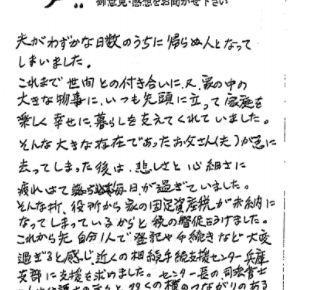 御意見・感想をお聞かせ下さい
夫がわずかな日数のうちに帰らぬ人となって
しまいました。
これまで世間との付き合いに、又、家の中の
大きな物事に、いつも先頭に立って家族を
楽しく幸せに、暮らしを支えてくれていました。
そんな大きな存在であったお父さん(夫)が急に
去ってしまった後は、悲しさと心細さに
疲れはて 毎日が過ぎていました。
そんな折、役所から家の固定資産税が未納に
なってしまっているからと税の督促をうけました。
これから先、自分1人で登記や手続きなど大変
過ぎると感じ、近くの相続手続支援センター兵庫
支部に支援を求めました。センター長の司法書士
の横のつながりのある